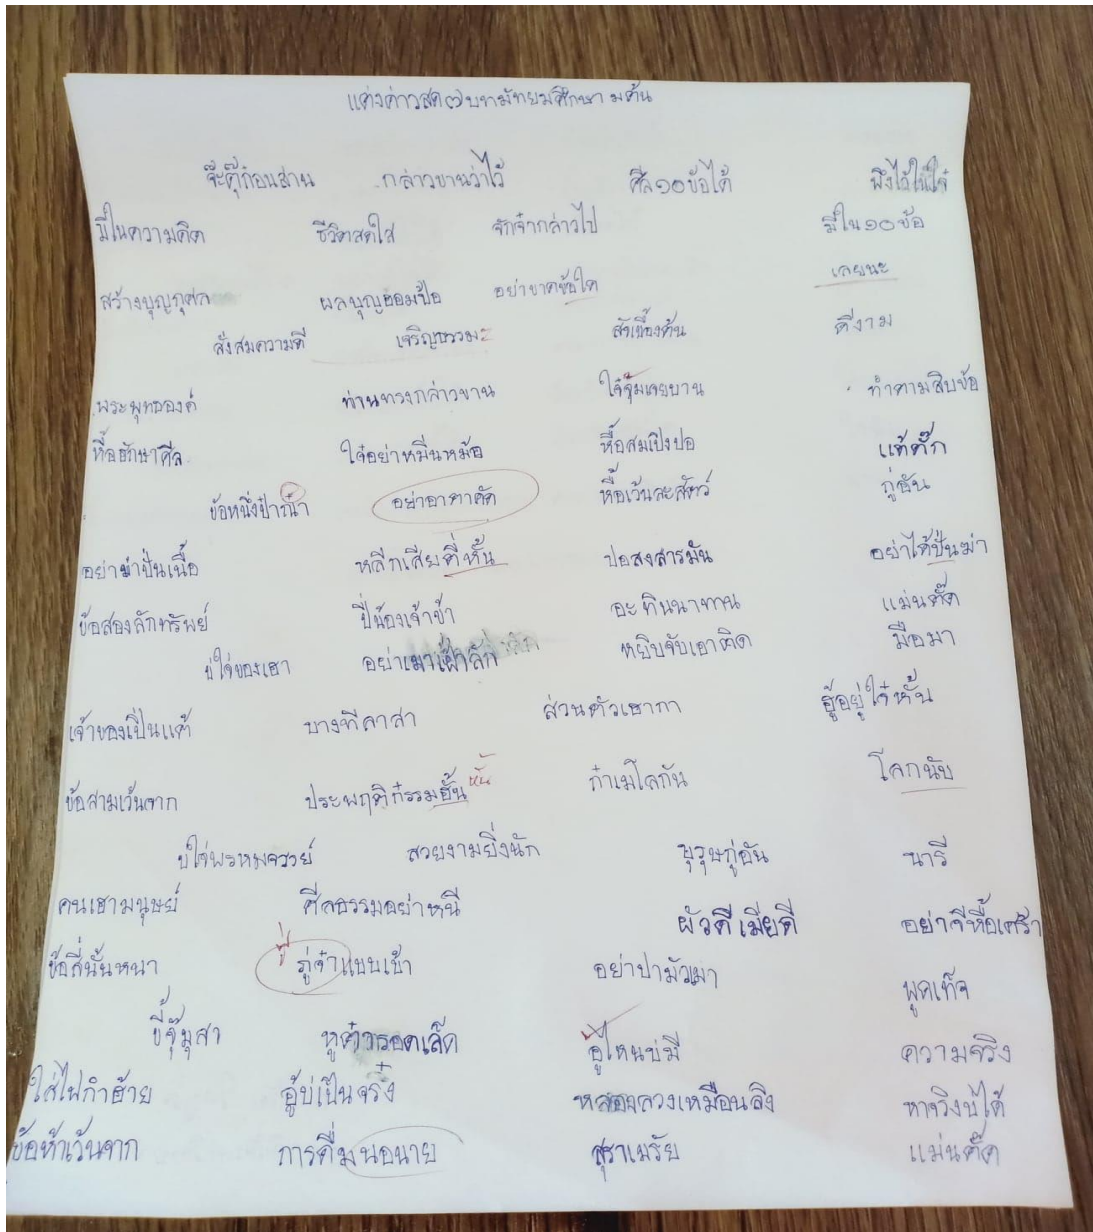 แต่งค่าวสด๗บทมัทยมศึกษา มต้น
จ๊ะตุ๊ก่อนสาน กล่าวขานว่าไว้ ศีล๑๐ข้อได้ พึงไว้ในใจ๋
มีในความคิด ชีวิตสดใส จักจ๋ากล่าวไป มีใน๑๐ข้อ
สร้างบุญกุศล ผลบุญฮอมป้อ อย่าขาดข้อใด เลยนะ
สั่งสมความดี เจริญธรรมะ สัเบื้องต้น ดีงาม
พระพุทธองค์ ท่านทรงกล่าวขาน ใจ๋จุ่มเจยบาน ทำตามสิบข้อ
หื้อฮักษาศีล ใจ๋อย่าหมิ่นหม้อ หื้อสมเปิงปอ แต้ตั๊ก
ข้อหนึ่งป๋าณ๋า อย่าอาฆาตคัด หื้อเว้นละสัตว์ กู่อัน
อย่าฆ่าปั่นเนื้อ หลีกเสียตี่หั้น ปอสงสารมัน อย่าได้ปั่นฆ่า
ข้อสองลักทรัพย์ ปี่น้องเจ้าข้า อะทินนาทาน แม่นตั๊ด
บ่ใจ่ของเฮา อย่าเมาเฝ้าลัก หยิบจับเอาติด มือมา
เจ้าของเปิ่นแต้ บางทีลาสา ส่วนตัวเฮากา ฮู้อยู่ใจ๋หั้น
ข้อสามเว้นจาก ประพฤติก๋รรมฮั้น หั้น ก๋าเมโลกัน โลกนับ
บ่ใจ่พรหมจรรย์ สวยงามยิ่งนัก บุรุษกู่อัน นารี
คนเฮามนุษย์ ศีลธรรมอย่าหนี ผัวดีเมียดี อย่าจีหื้อเศร้า
ข้อสี่นั้นหนา ขู่ กู่จ๋าแบบเบ้า อย่าปามัวเมา พูดเท็จ
ขี้จุ๊มุสา หูต๋ารอดเล็ด อู้ไหนบ่มี ความจริง
ใส่ไฟกำฮ้าย อู้บ่เป็นจริ๋ง หลอกลวงเหมือนลิง หาจริงบ่ได้
ข้อห้าเว้นจาก การดื่มนอนาย สุราเมรัย แม่นตั๊ด